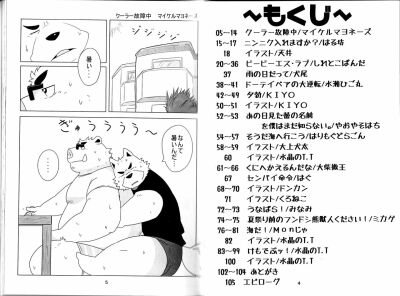 クーラー故障中　マイケルマヨネーズ
ジジジジ
暑い…
暑い…
ぎゅうううう〜
なんで
暑いんだ…
5
〜もくじ〜
05〜14　クーラー故障中/マイケルマヨネーズ
15〜17　ニンニク入れますか?/はる坊
18　イラスト/天井
20〜36　ビーピーエス・ラブ/しれとこぱんだ
37　雨の日だって/犬尾
38〜41　ドーテイベアの大逆転/水瀬ひぐ丸
42〜49　夕効/KIYO
50〜51　イラスト/KIYO
52〜53　あの日見た蕾の名前
を僕はまだ知らない。/やおやさはち
54〜57　そうだ海へ行こう/はりもぐどらごん
58〜59　イラスト/大上犬太
60　イラスト/水晶のT.T
61〜66　くにへかえるんだな/大柴微王
67　センパイ命令/はぐ
68〜70　イラスト/ドンカン
71　イラスト/くろねこ
72〜73　うなばら!/みなみ
74〜75　夏祭り前のフンドシ熊獣人ください!/ミカゲ
76〜81　海だ!/Monじゃ
82　イラスト/水晶のT.T
83〜99　けもでぶッ!/水晶のT.T
100　イラスト/水晶のT.T
102〜104　あとがき
105　エピローグ
4